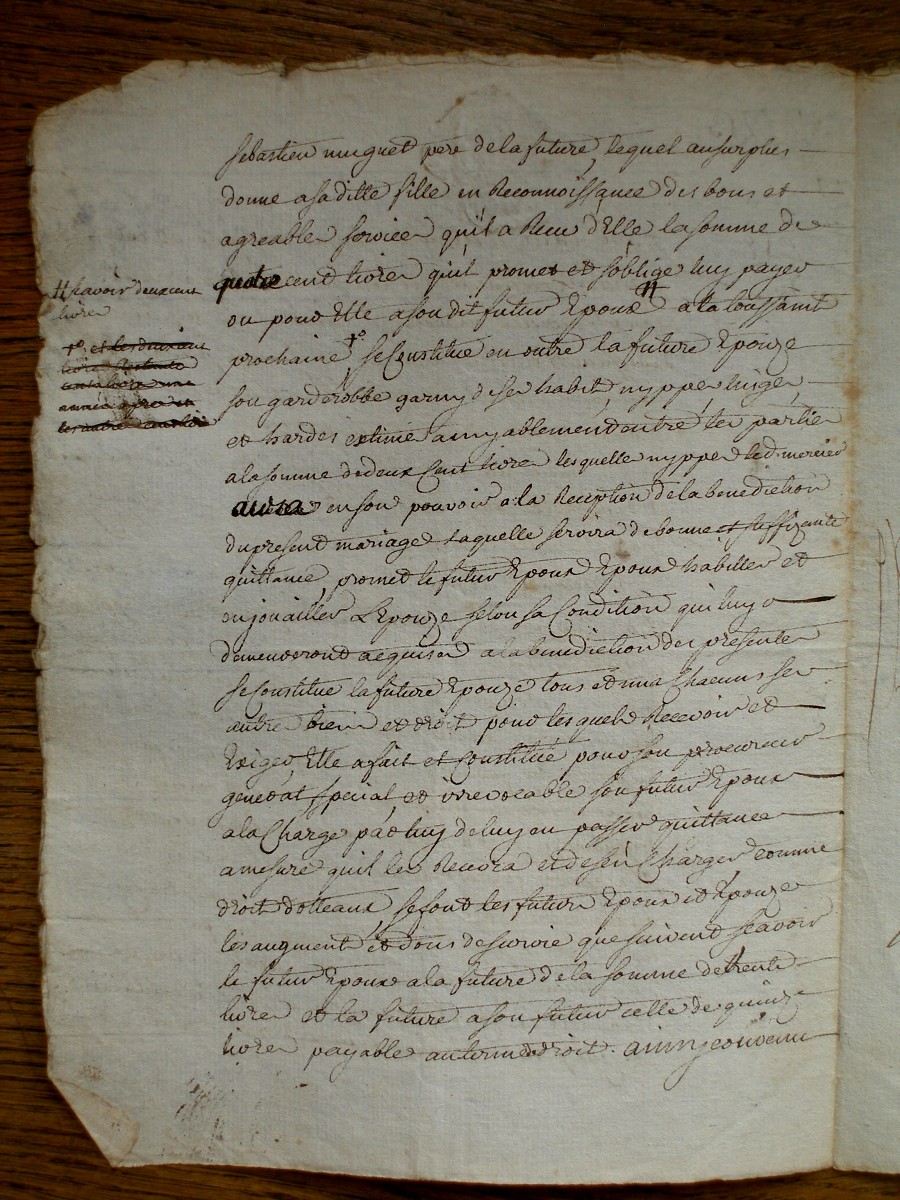 sebastien muguet pere de la future, lequel ausurplus
donne a sa ditte fille en Reconnoissance des bons et
agreables services qu'il a Receu d'Elle la somme de
quatre cent livres qu'il promet et s'oblige luy payer
ou pour Elle a son dit futur Epoux # a la toussaint
prochaine +o se Constitue en outre la future Epouze
son garderobbe garny de ses habits, nyppes linges
et hardes estimé amyablement entre les parties
a la somme de deux Cent livres lesquelles nyppes led. mercier
aura en son pouvoir a la Reception de la benediction
du present mariage laquelle servira de bonne et suffizante
quittance, promet le futur Epoux Epoux habiller et
enjouailler L'Epouze selon sa Condition qui luy
demeureront acquises a la benediction des presentes
se Constitue la future Epouze tous et uns Chacuns ses
autres biens et droits pour lesquels Recevoir et
Exiger Elle a fait et Constitué pour son procureur
general special, et irrevocable son futur Epoux
a la Charge par luy de luy en passer quittance
a mesure qu'il les Recevra et de s'en Charger comme
droit dotteaux, se font les futurs Epoux et Epouze
les augments et dons de survie que suivent scavoir
le futur Epoux a la future de la somme de trente
livres et la future a son futur celle de quinze
livres payable au terme de droit. ainsy convenu
# scavoir deux cent
livres
+o et les deux cent
livres restantes